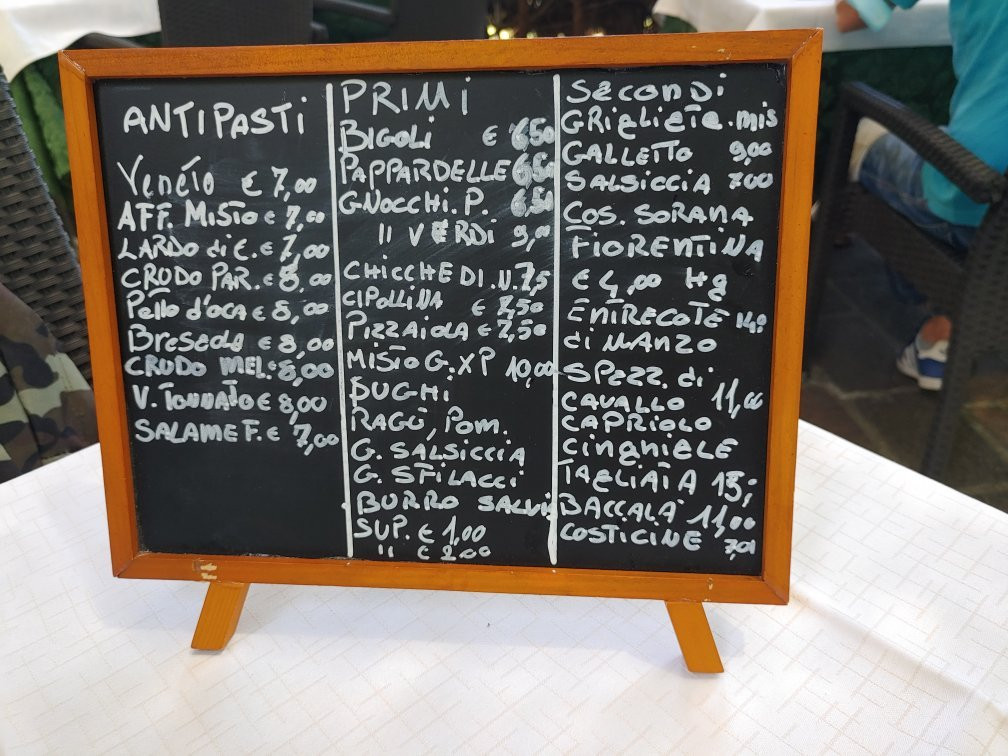 ANTIPASTI
Veneto € 7,00
AFF. MISTO € 7,00
LARDO di C. € 7,00
CRUDO PAR. € 8,00
Petto d'oca € 8,00
Bresaola € 8,00
CRUDO MEL. € 8,00
V. TONNATO € 8,00
SALAME F. € 7,00
PRIMI
BIGOLI € 6,50
PAPPARDELLE 6,50
GNOCCHI. P. 6,50
" VERDI 9,00
CHICCHE DI .N. 7,5
CIPOLLINA € 7,50
PIZZAIOLA € 7,50
MISTO G. X P 10,00
SUGHI
RAGÙ, POM.
G. SALSICCIA
G. SFILACCI
BURRO SALVI
SUP. € 1,00
" € 2,00
SECONDI
GRIGLIETA.mis
GALLETTO 9,00
SALSICCIA 7,00
COS. SORANA
FIORENTINA
€ 4,00 Hg
ENTRECOTE
di MANZO
SPEZZ. di
CAVALLO 11,00
CAPRIOLO
CINGHIELE
TAGLIATA 15,
BACCALA' 11,00
COSTICINE